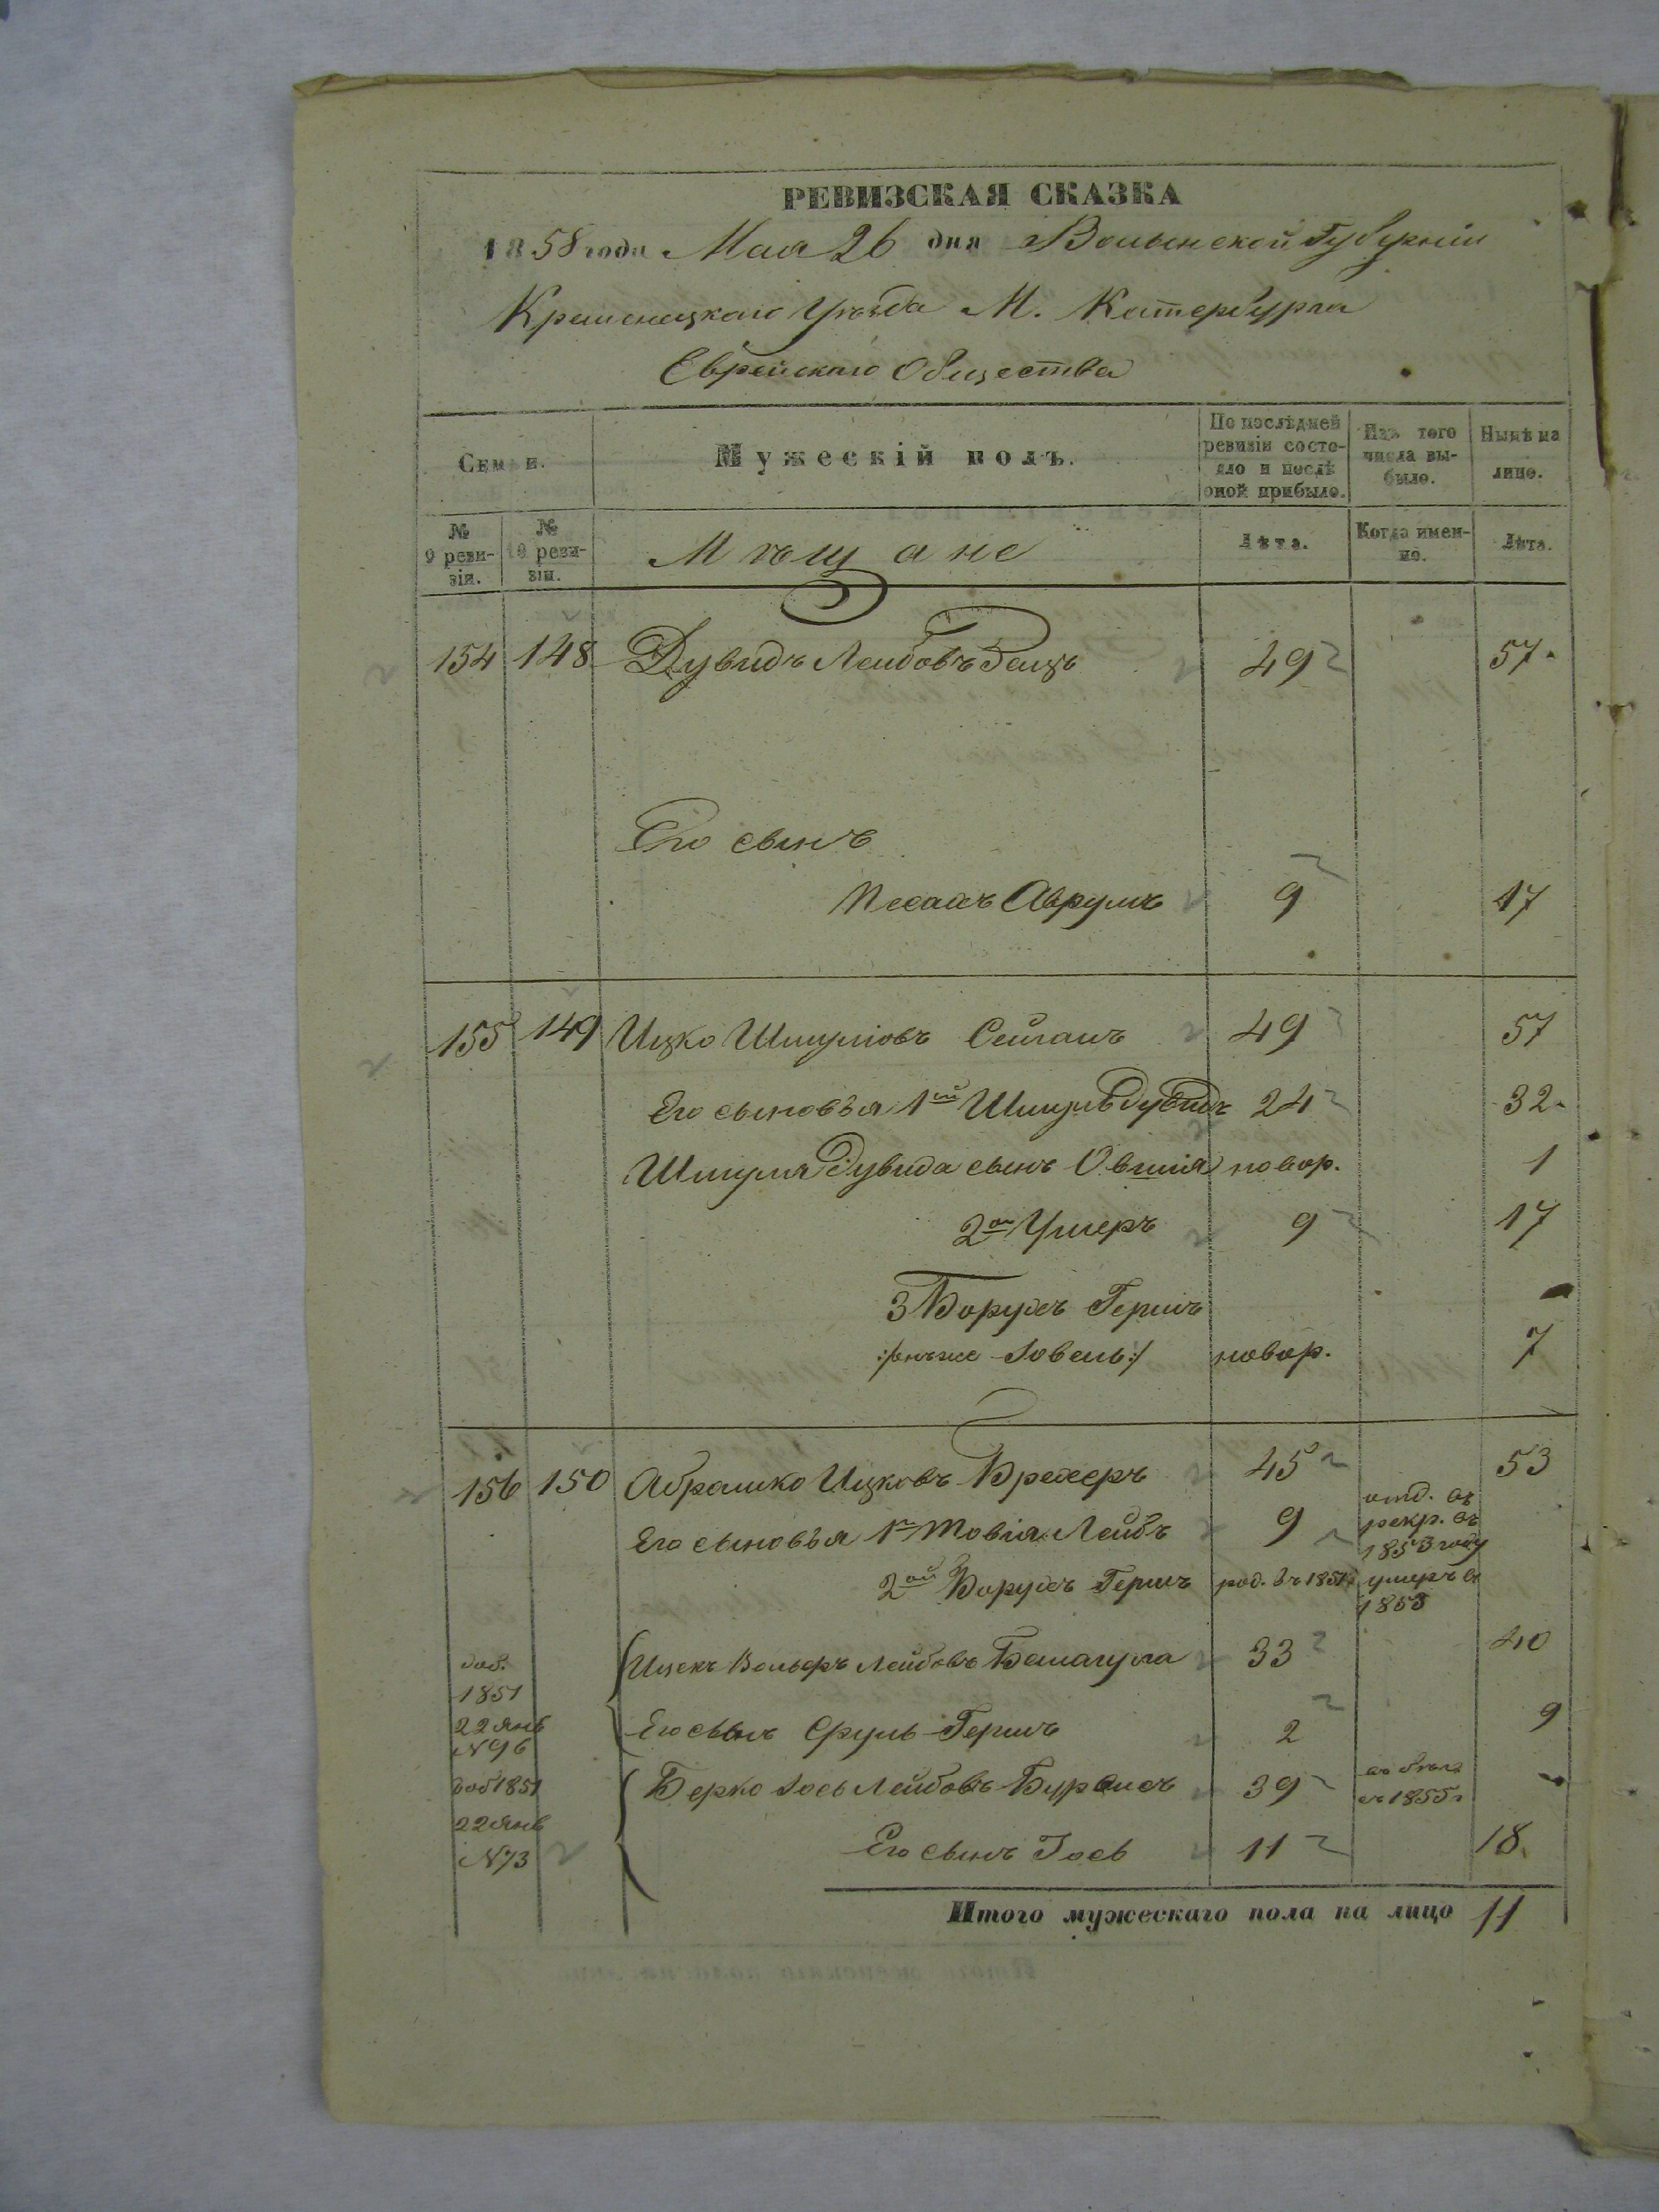 РЕВИЗСКАЯ СКАЗКА
1858 года Мая 26 дня Волынской Губерніи
Кременецкаго Уѣзда М. Катербурга
Еврейскаго Общества
Семьи.
Мужескій полъ.
По послѣдней ревизіи состояло и послѣ оной прибыло.
Изъ того числа выбыло.
Нынѣ на лицо.
№ 9 ревизіи.
№ 10 ревизіи.
Мѣщане
Лѣта.
Когда именно.
Лѣта.
154 148 Дувидъ Лейбовъ 49 57
Его сынъ
Песахъ Аврумъ 9 17
155 149 Ицко Шмуліовъ Сейганъ 49 57
Его сыновья 1ый Шмуль Дувидъ 24 32
Шмуля Дувида сынъ Овшія новор. 1
2ой Ушеръ 9 17
3 Борухъ Гершъ
/:онъ же Іовель:/ новор. 7
156 150 Абрамко Ицковъ Брехеръ 45 53
Его сыновья 1й Товія Лейбъ 9 отд. въ рекр. въ 1853 году
2ой Борухъ Гершъ род. въ 1851 умеръ въ 1853
доб. 1851 22 Янв N96
Ицекъ Вольфъ Лейбовъ 33 40
Его сынъ Сруль Гершъ 2 9
доб 1851 22 Янв N73
Берко Іось Лейбовъ 39 въ 1855г
Его сынъ Іось 11 18
Итого мужескаго пола на лицо 11